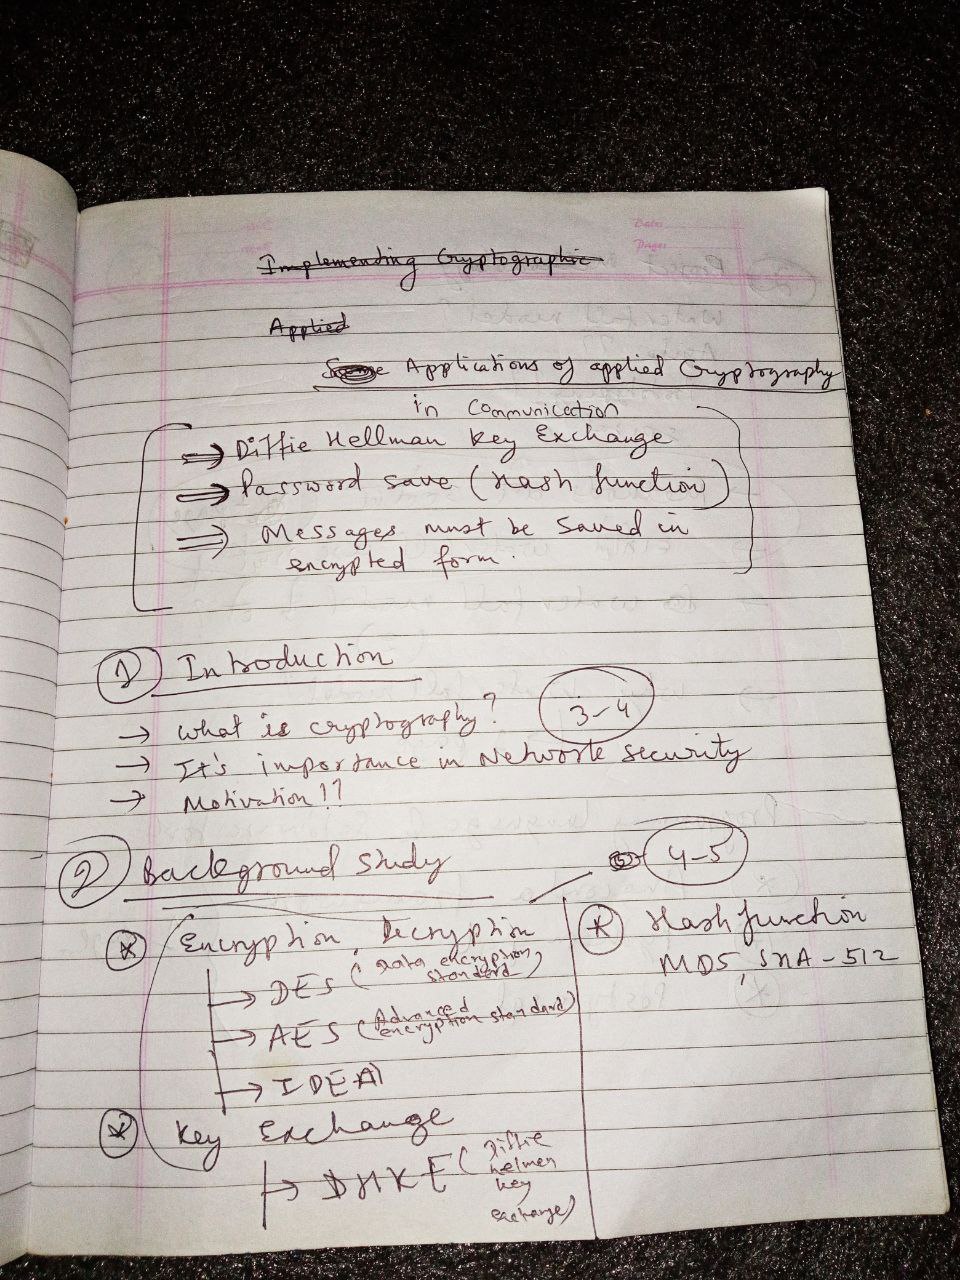 Date:
Page:
Implementing Cryptographic
Applied
Some Applications of applied Cryptography
in Communication
⇒ Diffie Hellman Key Exchange
⇒ Password save (Hash function)
⇒ Messages must be Saved in
encrypted form.
1 Introduction
→ what is cryptography?
3-4
→ It's importance in Network security
→ Motivation!?
2 Background Study
4-5
Encryption, Decryption
→ DES (data encryption
standard)
→ AES (Advanced
encryption standard)
→ IDEA
Key Exchange
→ DHKE (Diffie
helmen
key
exchange)
Hash function
MD5, SHA-512